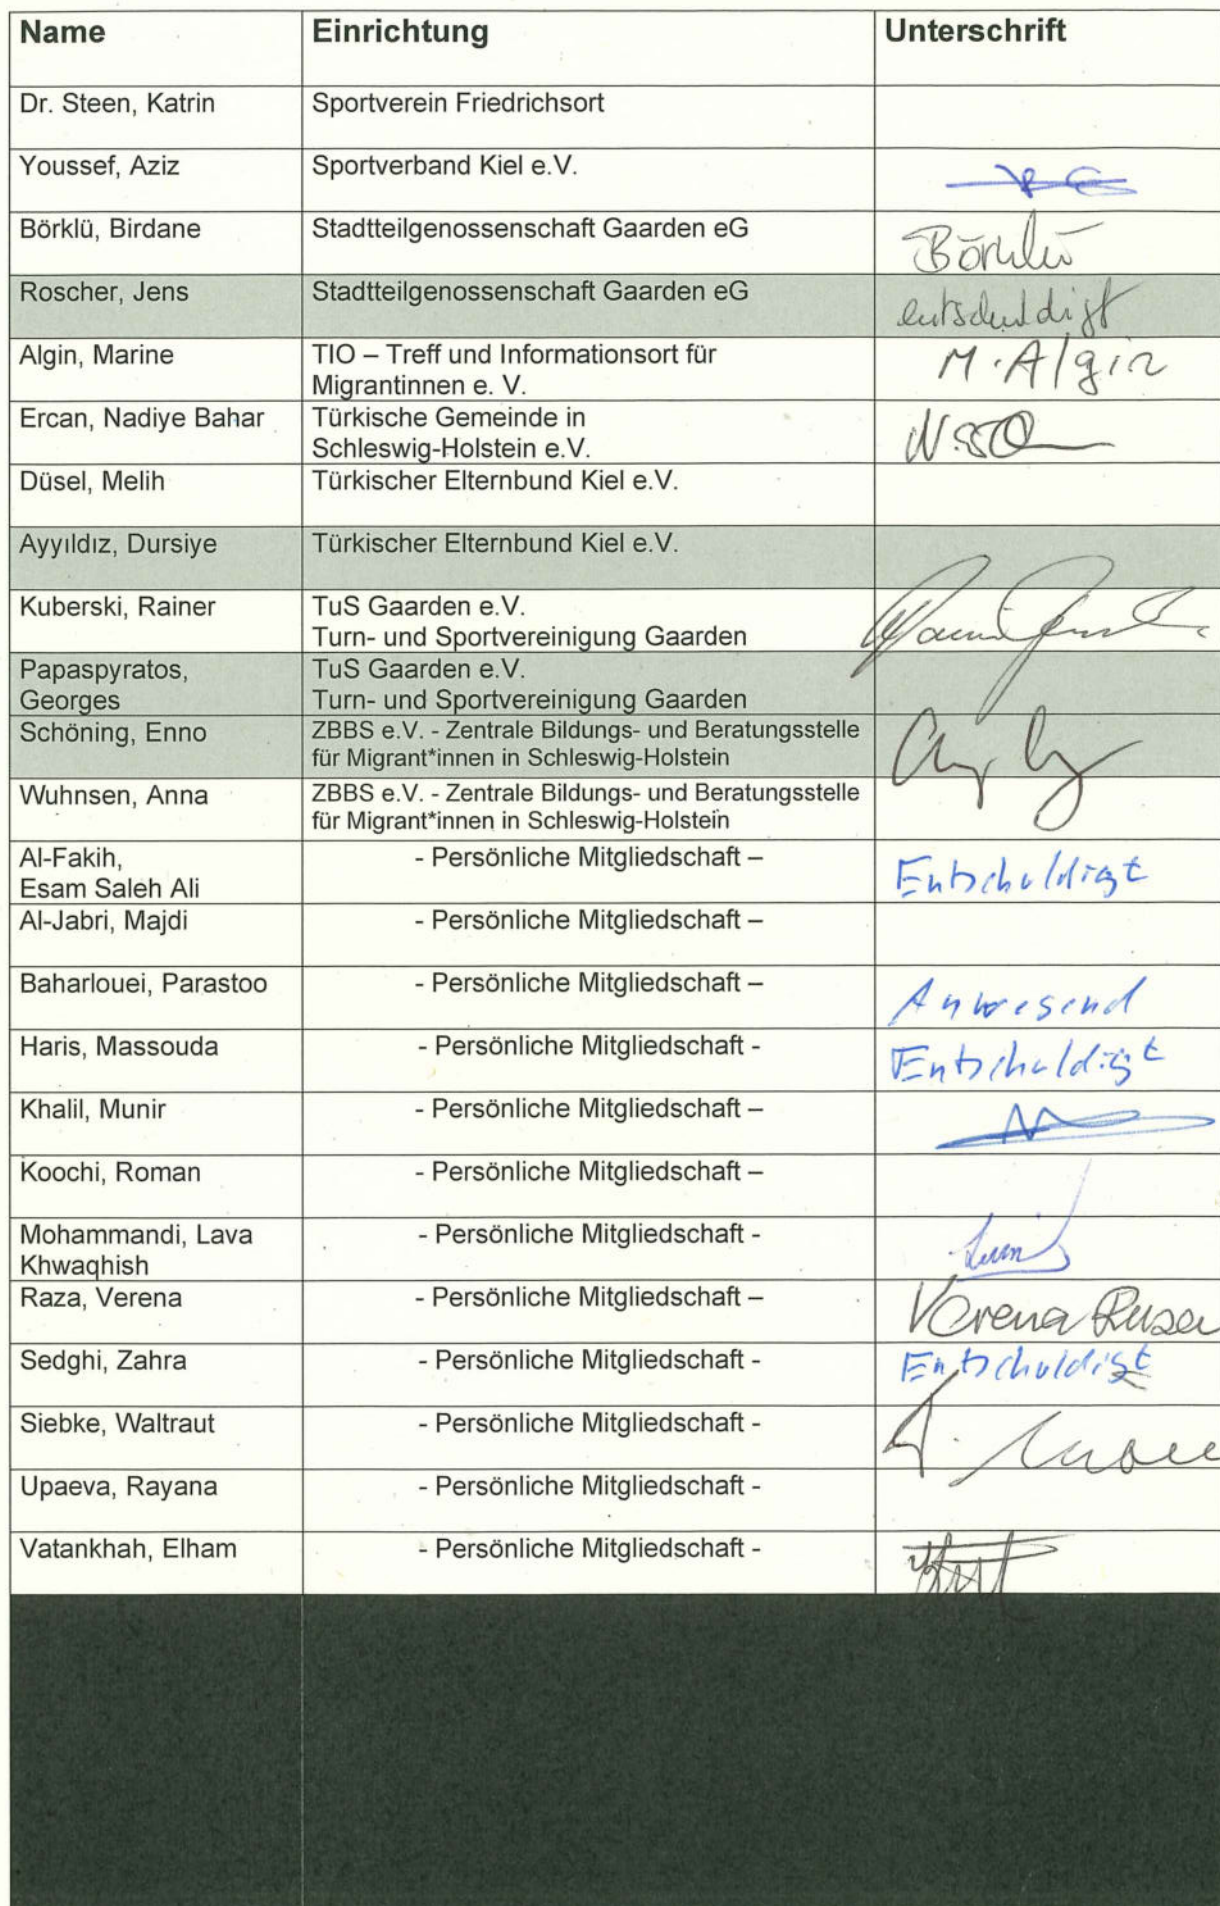 Name Einrichtung Unterschrift
Dr. Steen, Katrin Sportverein Friedrichsort
Youssef, Aziz Sportverband Kiel e.V.
Börklü, Birdane Stadtteilgenossenschaft Gaarden eG Börklü
Roscher, Jens Stadtteilgenossenschaft Gaarden eG entschuldigt
Algin, Marine TIO – Treff und Informationsort für M. Algin
Migrantinnen e. V.
Ercan, Nadiye Bahar Türkische Gemeinde in
Schleswig-Holstein e.V.
Düsel, Melih Türkischer Elternbund Kiel e.V.
Ayyıldız, Dursiye Türkischer Elternbund Kiel e.V.
Kuberski, Rainer TuS Gaarden e.V.
Turn- und Sportvereinigung Gaarden
Papaspyratos, TuS Gaarden e.V.
Georges Turn- und Sportvereinigung Gaarden
Schöning, Enno ZBBS e.V. - Zentrale Bildungs- und Beratungsstelle
für Migrant*innen in Schleswig-Holstein
Wuhnsen, Anna ZBBS e.V. - Zentrale Bildungs- und Beratungsstelle
für Migrant*innen in Schleswig-Holstein
Al-Fakih, - Persönliche Mitgliedschaft – Entschuldigt
Esam Saleh Ali
Al-Jabri, Majdi - Persönliche Mitgliedschaft –
Baharlouei, Parastoo - Persönliche Mitgliedschaft – Anwesend
Haris, Massouda - Persönliche Mitgliedschaft - Entschuldigt
Khalil, Munir - Persönliche Mitgliedschaft –
Koochi, Roman - Persönliche Mitgliedschaft –
Mohammandi, Lava - Persönliche Mitgliedschaft -
Khwaqhish
Raza, Verena - Persönliche Mitgliedschaft – Verena Raza
Sedghi, Zahra - Persönliche Mitgliedschaft - Entschuldigt
Siebke, Waltraut - Persönliche Mitgliedschaft -
Upaeva, Rayana - Persönliche Mitgliedschaft -
Vatankhah, Elham - Persönliche Mitgliedschaft -